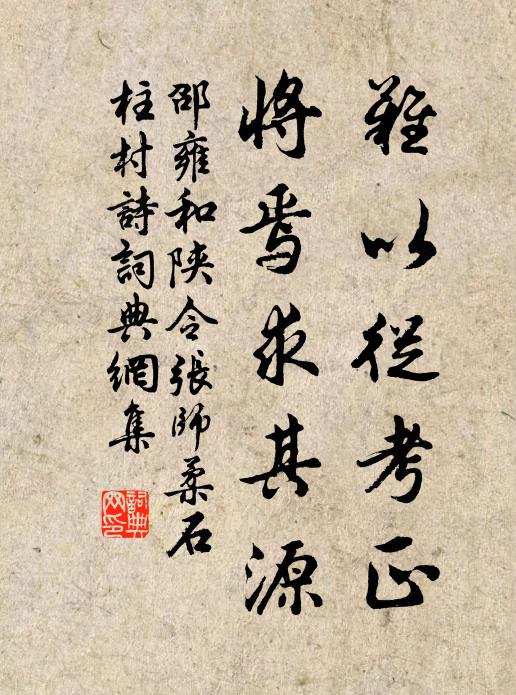 難以從考正
將焉求其源
邵雍和陝令張師柔石
柱村詩詞典網集
詞典網印